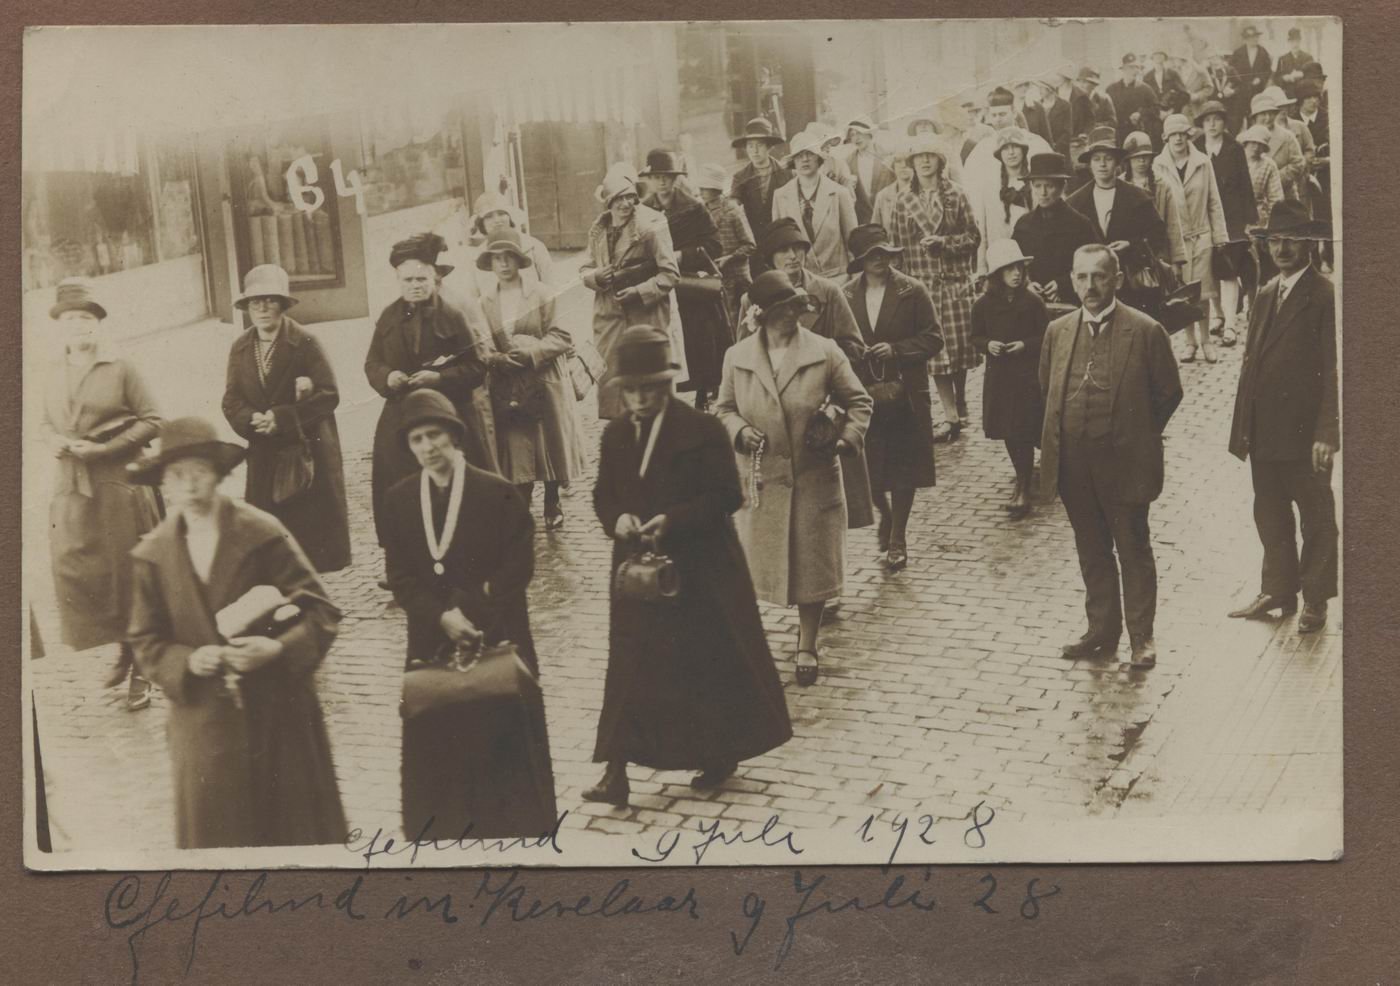 64
Gefilmd 9 Juli 1928
Gefilmd in Kevelaar 9 Juli 28